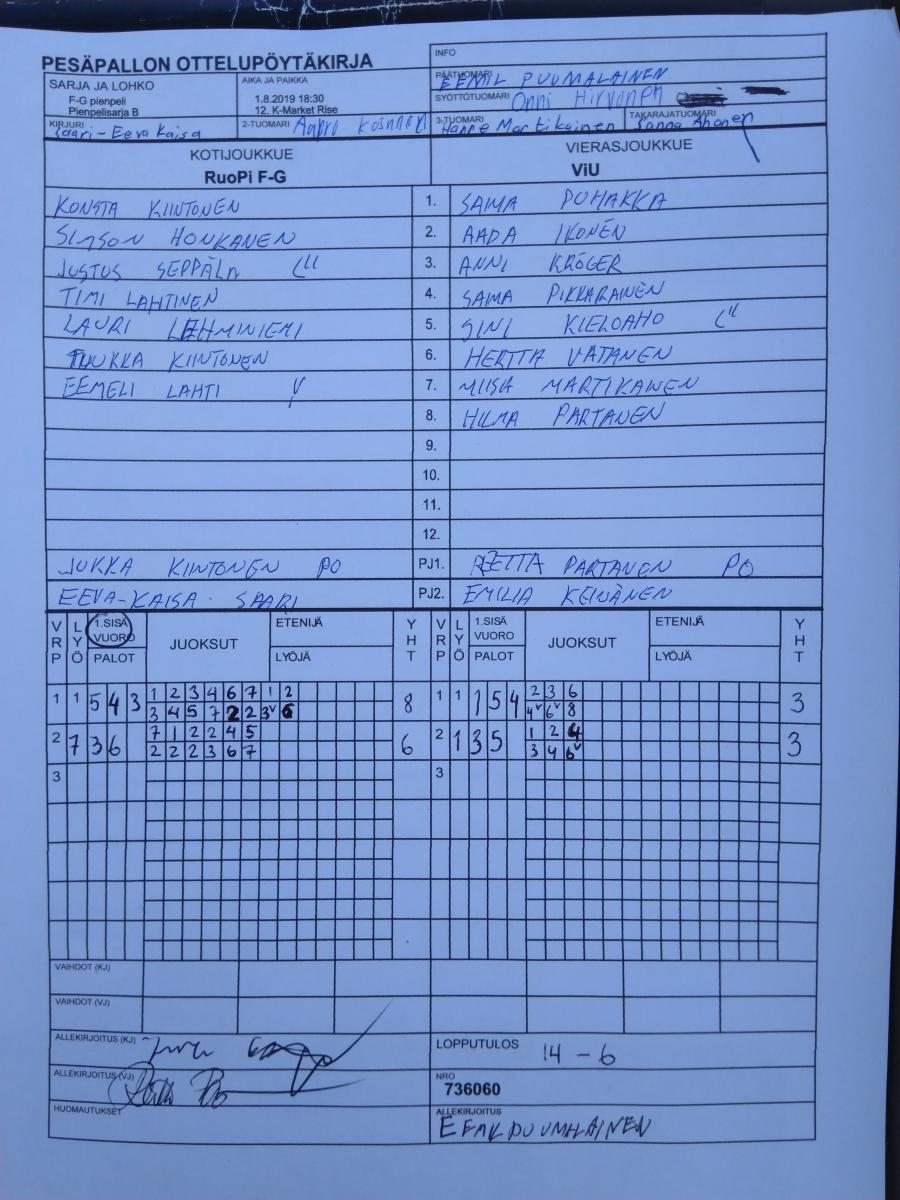 PESÄPALLON OTTELUPÖYTÄKIRJA
INFO
SARJA JA LOHKO
F-G pienpeli
Pienpelisarja B
AIKA JA PAIKKA
1.8.2019 18:30
12. K-Market Rise
PÄÄTUOMARI EEMIL PUUMALAINEN
SYÖTTÖTUOMARI Onni Hirvonen
KIRJURI Saari-Eeva Kaisa
2-TUOMARI Aapro Kosunen
3-TUOMARI Hanne Martikainen
TAKARAJATUOMARI Sanna Ahonen
KOTIJOUKKUE
RuoPi F-G
VIERASJOUKKUE
ViU
KONSTA KIINTONEN 1. SAIMA PUHAKKA
SIMSON HONKANEN 2. AADA IKONEN
JUSTUS SEPPÄLÄ 3. ANNI KRÖGER
TIMI LAHTINEN 4. SAIMA PIKKARAINEN
LAURI LEHMINIEMI 5. SINI KIELOAHO
TUUKKA KIINTONEN 6. HERTTA VATANEN
EEMELI LAHTI V 7. MIISA MARTIKAINEN
8. HILMA PARTANEN
9.
10.
11.
12.
JUKKA KIINTONEN PO PJ1. REETTA PARTANEN PO
EEVA-KAISA SAARI PJ2. EMILIA KEINÄNEN
VRP LYÖ 1.SISÄ VUORO PALOT JUOKSUT ETENIJÄ LYÖJÄ YHT VRP LYÖ 1.SISÄ VUORO PALOT JUOKSUT ETENIJÄ LYÖJÄ YHT
1 1 5 4 3 1 2 3 4 6 7 1 2 8 1 1 1 5 4 2 3 6 3
3 4 5 7 2 2 3v 6 4v 6v 8
2 7 3 6 7 1 2 2 4 5 6 2 1 3 5 1 2 4 3
2 2 2 3 6 7 3 4 6v
3 3
VAIHDOT (KJ)
VAIHDOT (VJ)
ALLEKIRJOITUS (KJ)
LOPPUTULOS 14 - 6
ALLEKIRJOITUS (VJ)
NRO
736060
HUOMAUTUKSET
ALLEKIRJOITUS